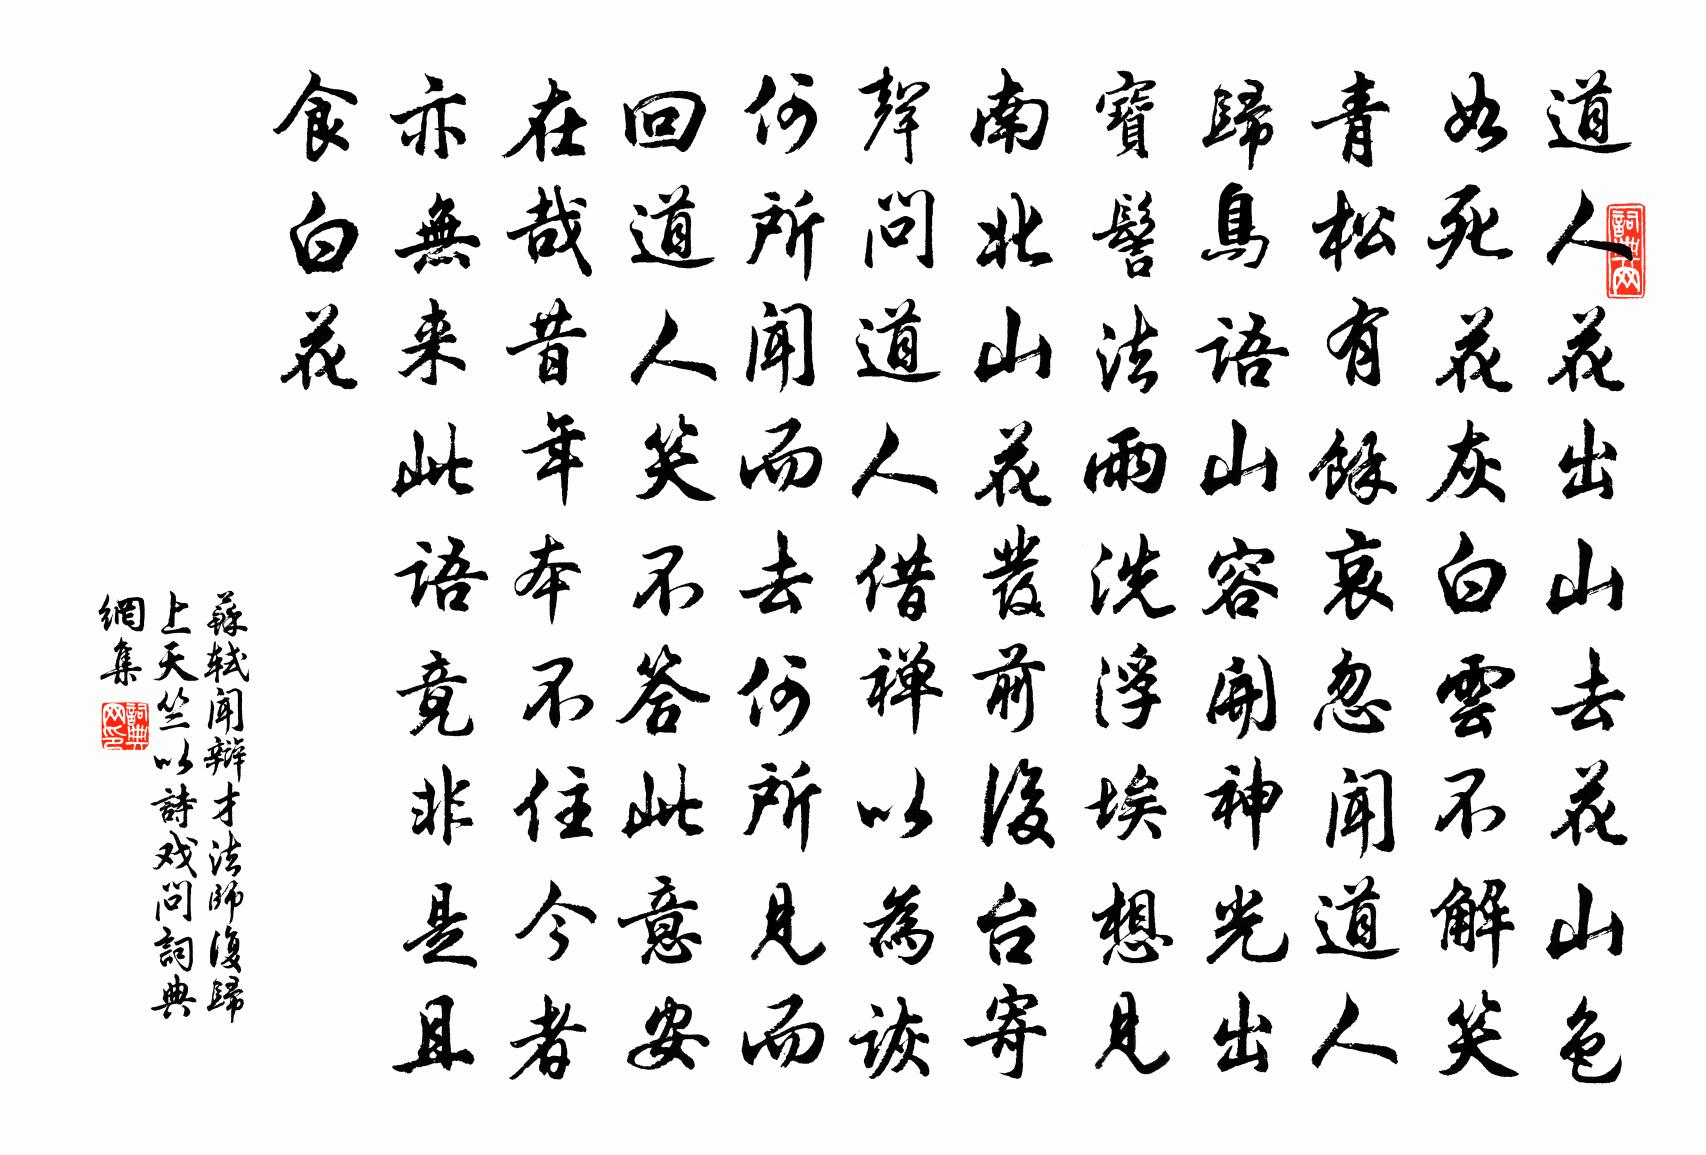 道人花出山去花山色
如死花灰白雲不解笑
青松有餘哀忽聞道人
歸鳥語山容開神光出
寶髻法雨洗浮埃想見
南北山花發前後台寄
聲問道人借禅以為詼
何所聞而去何所見而
回道人笑不答此意安
在哉昔年本不住今者
亦無来此語竟非是且
食白花
蘇軾聞辯才法師復歸
上天竺以詩戏問詞典
網集
詞典网
詞典网印